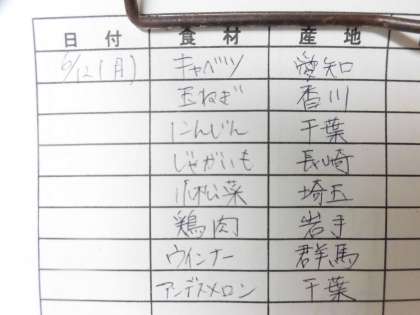 日付 食材 産地
6/12(月) キャベツ 愛知
玉ねぎ 香川
にんじん 千葉
じゃがいも 長崎
小松菜 埼玉
鶏肉 岩手
ウインナー 群馬
アンデスメロン 千葉